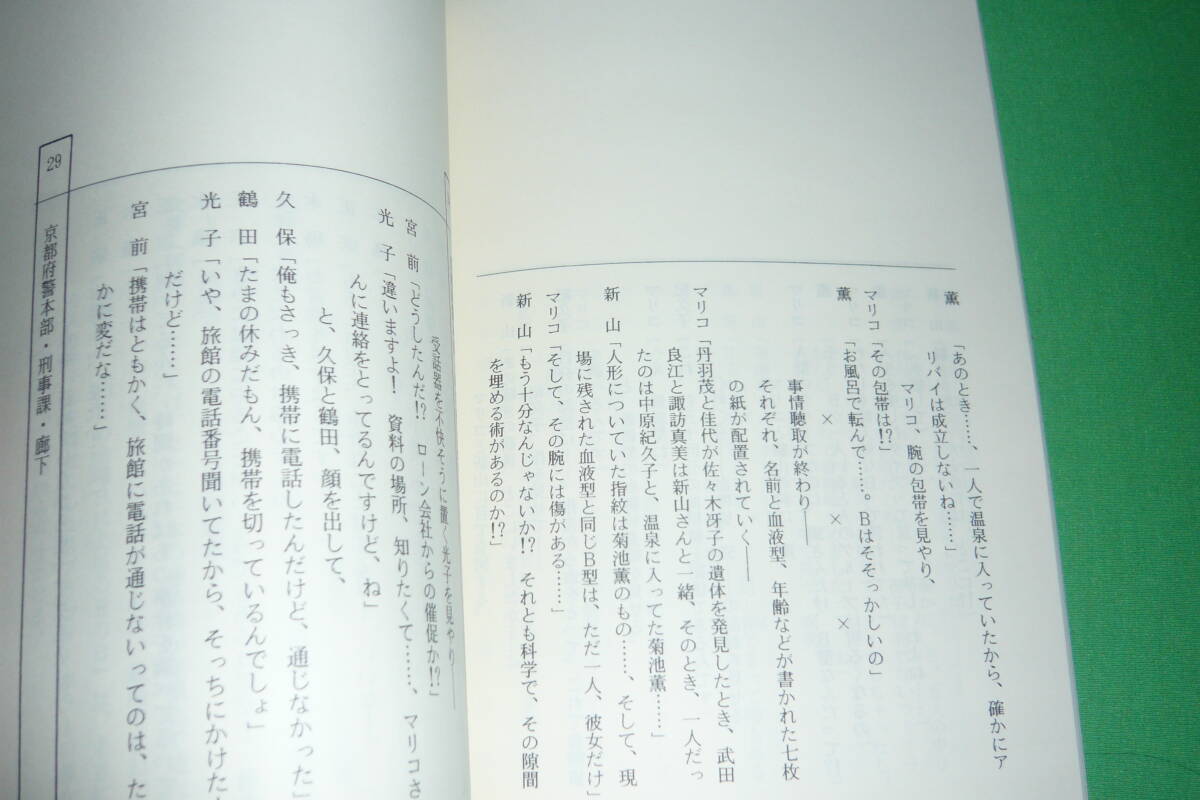 薫　「あのとき……、一人で温泉に入っていたから、確かにア
リバイは成立しないね……」
マリコ、腕の包帯を見やり、
マリコ「その包帯は!?」
薫　「お風呂で転んで……。Bはそそっかしいの」
×　×　×
事情聴取が終わり――
それぞれ、名前と血液型、年齢などが書かれた七枚
の紙が配置されていく――
マリコ「丹羽茂と佳代が佐々木冴子の遺体を発見したとき、武田
良江と諏訪真美は新山さんと一緒、そのとき、一人だっ
たのは中原紀久子と、温泉に入ってた菊池薫……」
新　山「人形についていた指紋は菊池薫のもの……、そして、現
場に残された血液型と同じB型は、ただ一人、彼女だけ」
マリコ「そして、その腕には傷がある……」
新　山「もう十分なんじゃないか!?　それとも科学で、その隙間
を埋める術があるのか!?」
受話器を不快そうに置く光子を見やり――
宮　前「どうしたんだ!?　ローン会社からの催促か!?」
光　子「違いますよ！　資料の場所、知りたくて……、マリコさ
んに連絡をとってるんですけど、ね」
と、久保と鶴田、顔を出して、
久　保「俺もさっき、携帯に電話したんだけど、通じなかった」
鶴　田「たまの休みだもん、携帯を切っているんでしょ」
光　子「いや、旅館の電話番号聞いてたから、そっちにかけた
だけど……」
宮　前「携帯はともかく、旅館に電話が通じないってのは、た
かに変だな……」
29　京都府警本部・刑事課・廊下